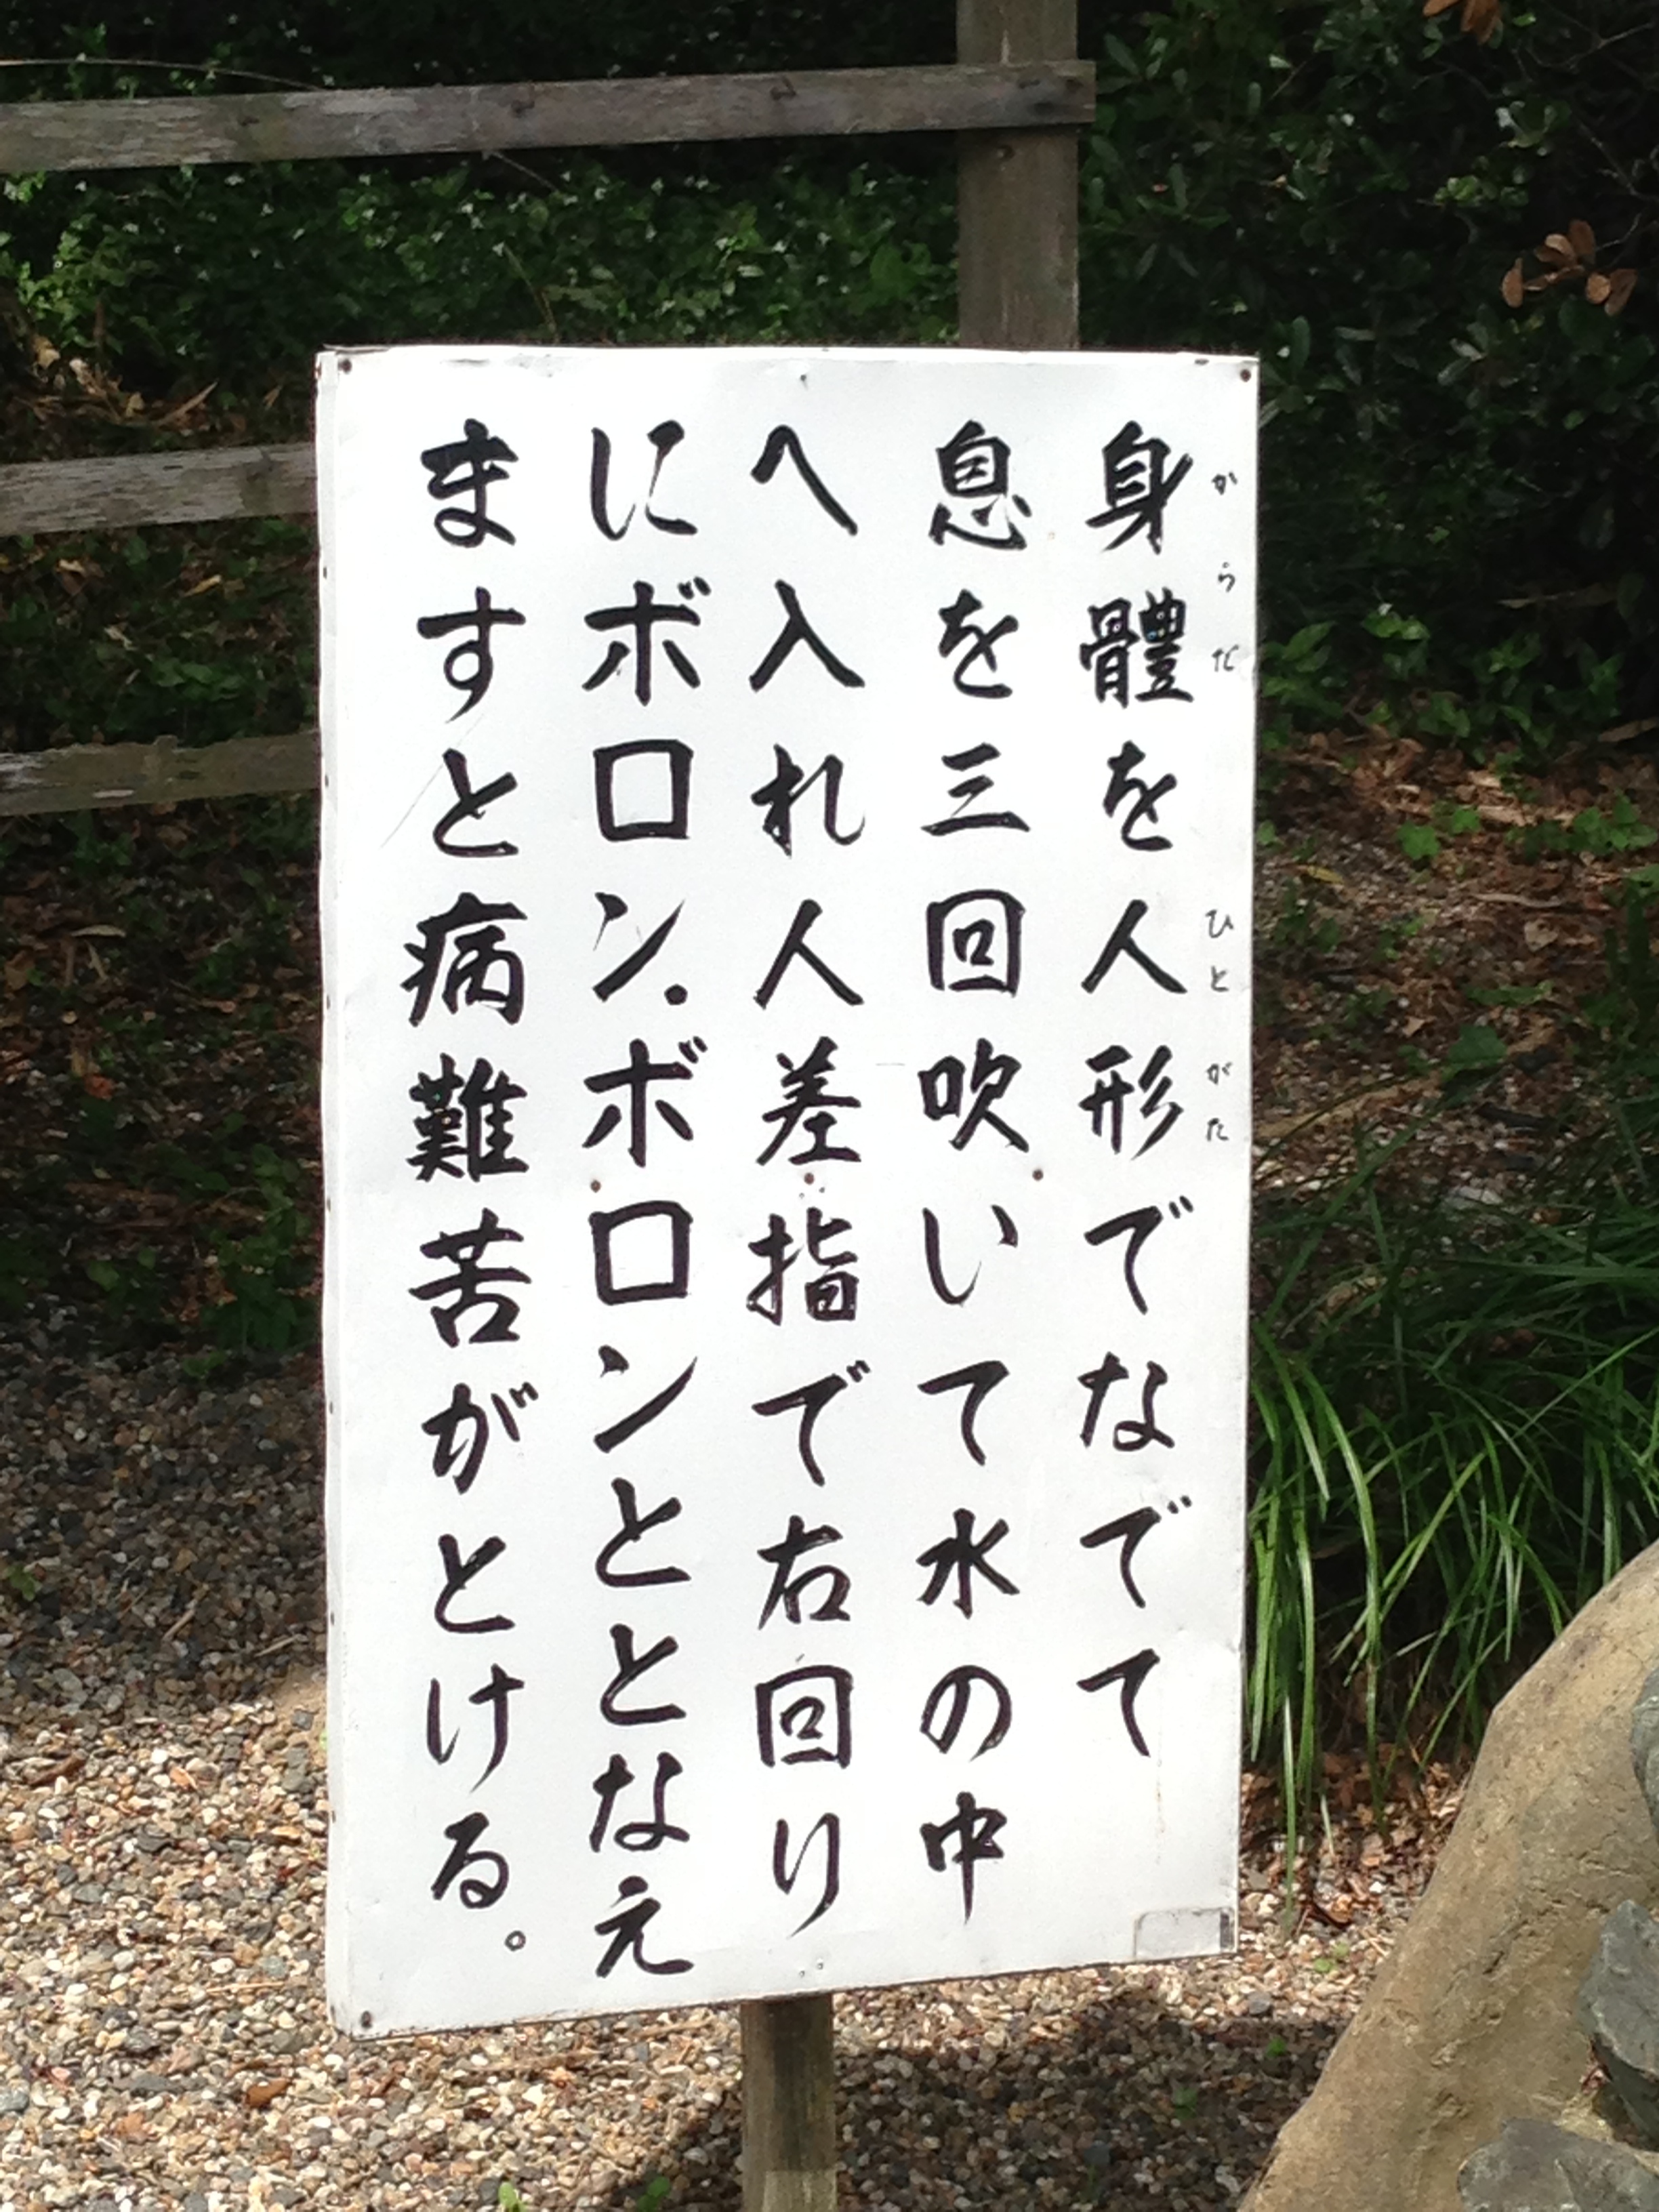 身體を人形でなでて
からだ
ひとがた
息を三回吹いて水の中
へ入れ人差指で右回り
にボロン.ボロンととなえ
ますと病難苦がとける。